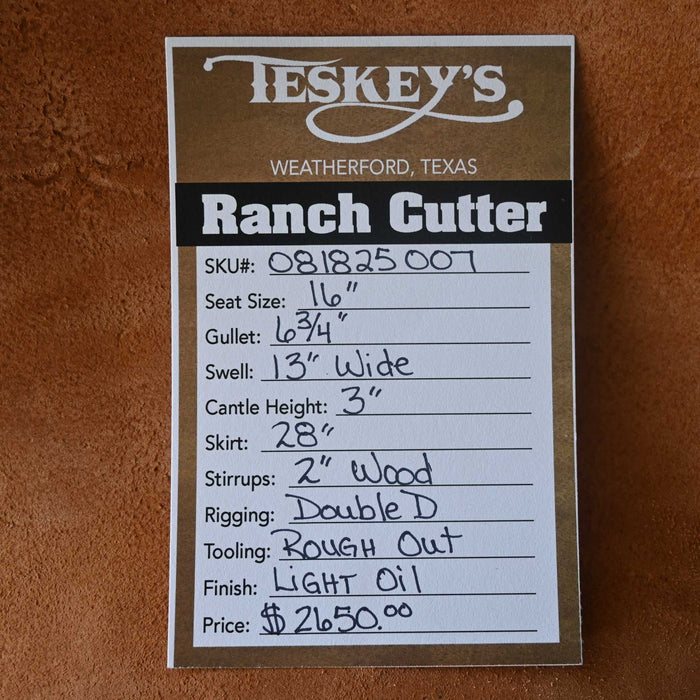 TESKEY'S
WEATHERFORD, TEXAS
Ranch Cutter
SKU#: 081825007
Seat Size: 16"
Gullet: 6 3/4"
Swell: 13" Wide
Cantle Height: 3"
Skirt: 28"
Stirrups: 2" Wood
Rigging: Double D
Tooling: ROUGH Out
Finish: LIGHT Oil
Price: $2650.00